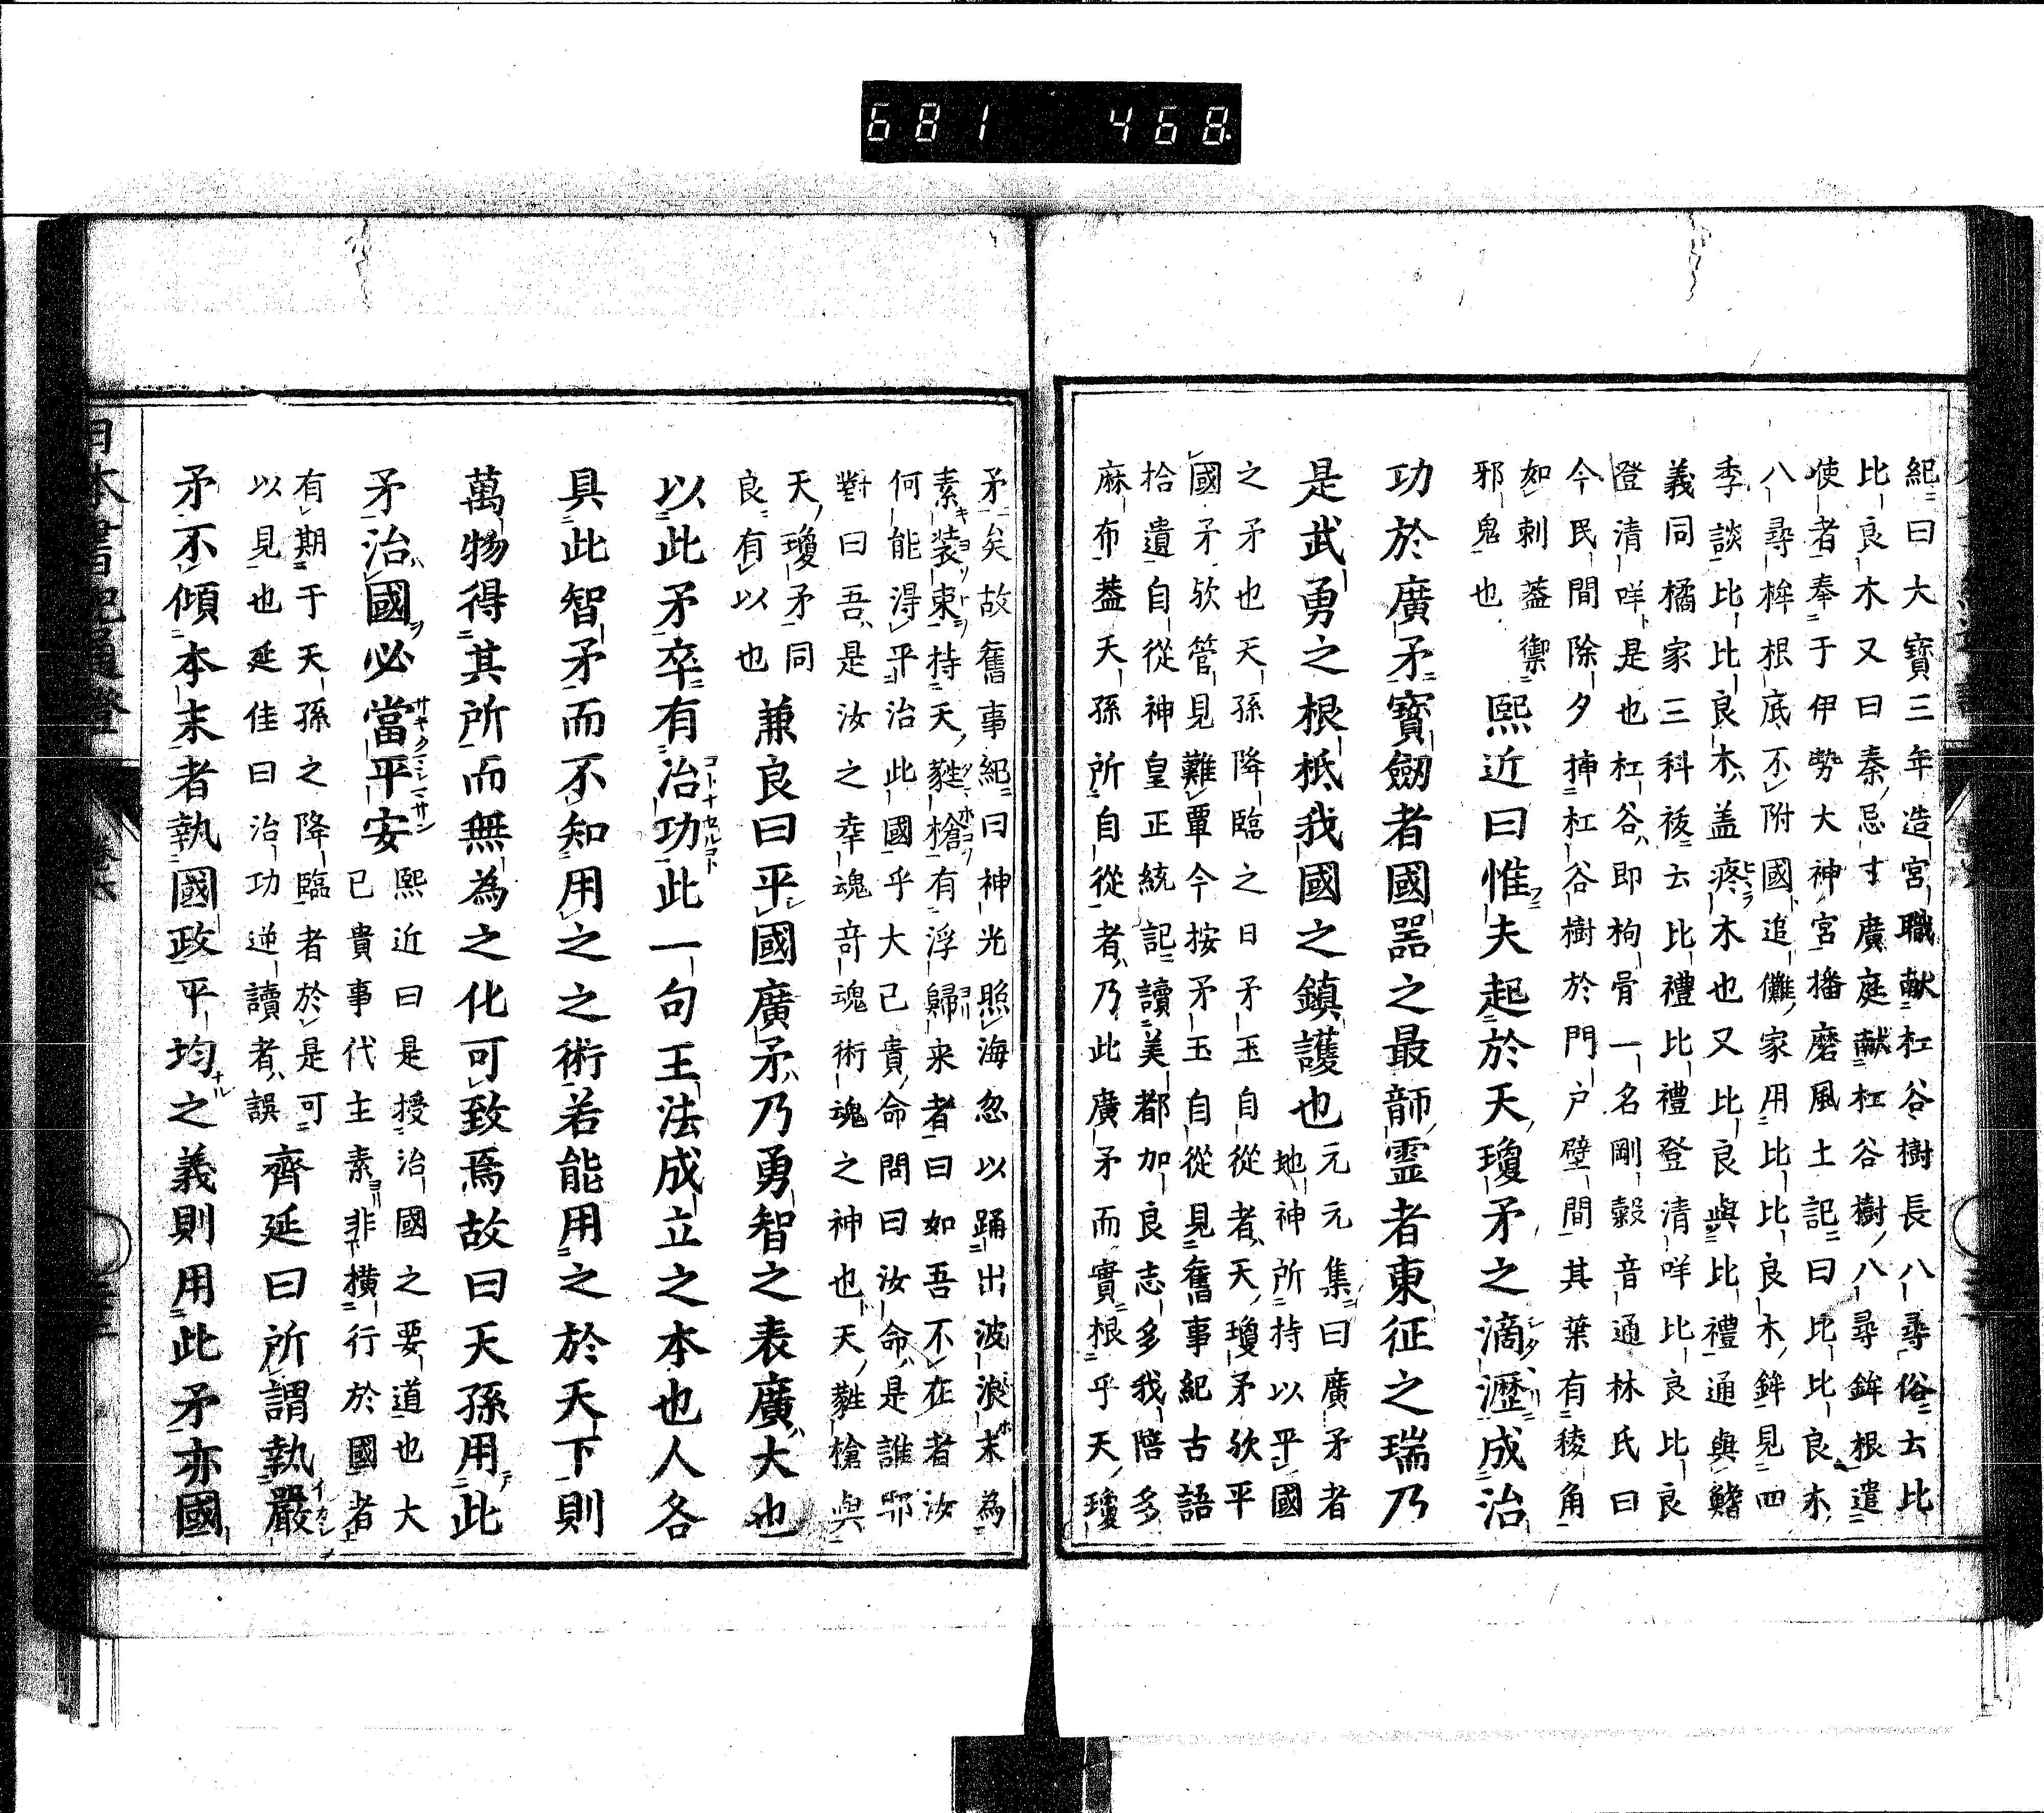 681 468
紀曰大寶三年造宮職献杠谷樹長八尋俗云比
比良木又曰秦忌寸廣庭献杠谷樹八尋鉾根遣
使者奉于伊勢大神宮播磨風土記曰比比良木
八尋桙根底不附國追儺家用比比良木鉾見四
季談比比良木盖疼木也又比良與比禮通與鰭
義同橘家三科祓云比禮比禮登清咩比良比良
登清咩是也杠谷即枸骨一名剛榖音通林氏曰
今民間除夕挿杠谷樹於門戶壁間其葉有稜角
如刺葢禦
邪鬼也
熙近曰惟夫起於天瓊矛之滴瀝成治
功於廣矛寶劔者國噐之最師靈者東征之瑞乃
是武勇之根柢我國之鎮護也
元元集曰廣矛者
地神所持以平國
之矛也天孫降臨之日矛玉自從者天瓊矛欤平
國矛欤管見難覃今按矛玉自從見舊事紀古語
拾遺自從神皇正統記讀美都加良志多我陪多
麻布葢天孫所自從者乃此廣矛而實根乎天瓊
矛矣故舊事紀曰神光照海忽以踊出波浪末為
素装束持天蕤槍有浮歸来者曰如吾不在者汝
何能得平治此國乎大己貴命問曰汝命是誰耶
對曰吾是汝之幸魂奇魂術魂之神也天蕤槍與
天瓊矛同
良有以也
兼良曰平國廣矛乃勇智之表廣大也
以此矛卒有治功此一句王法成立之本也人各
具此智矛而不知用之之術若能用之於天下則
萬物得其所而無為之化可致焉故曰天孫用此
矛治國必當平安
熙近曰是授治國之要道也大
己貴事代主素非横行於國者
有期于天孫之降臨者於是可
以見也延佳曰治功逆讀者誤
齊延曰所謂執嚴
矛不傾本末者執國政平均之義則用此矛亦國
日本書紀通證